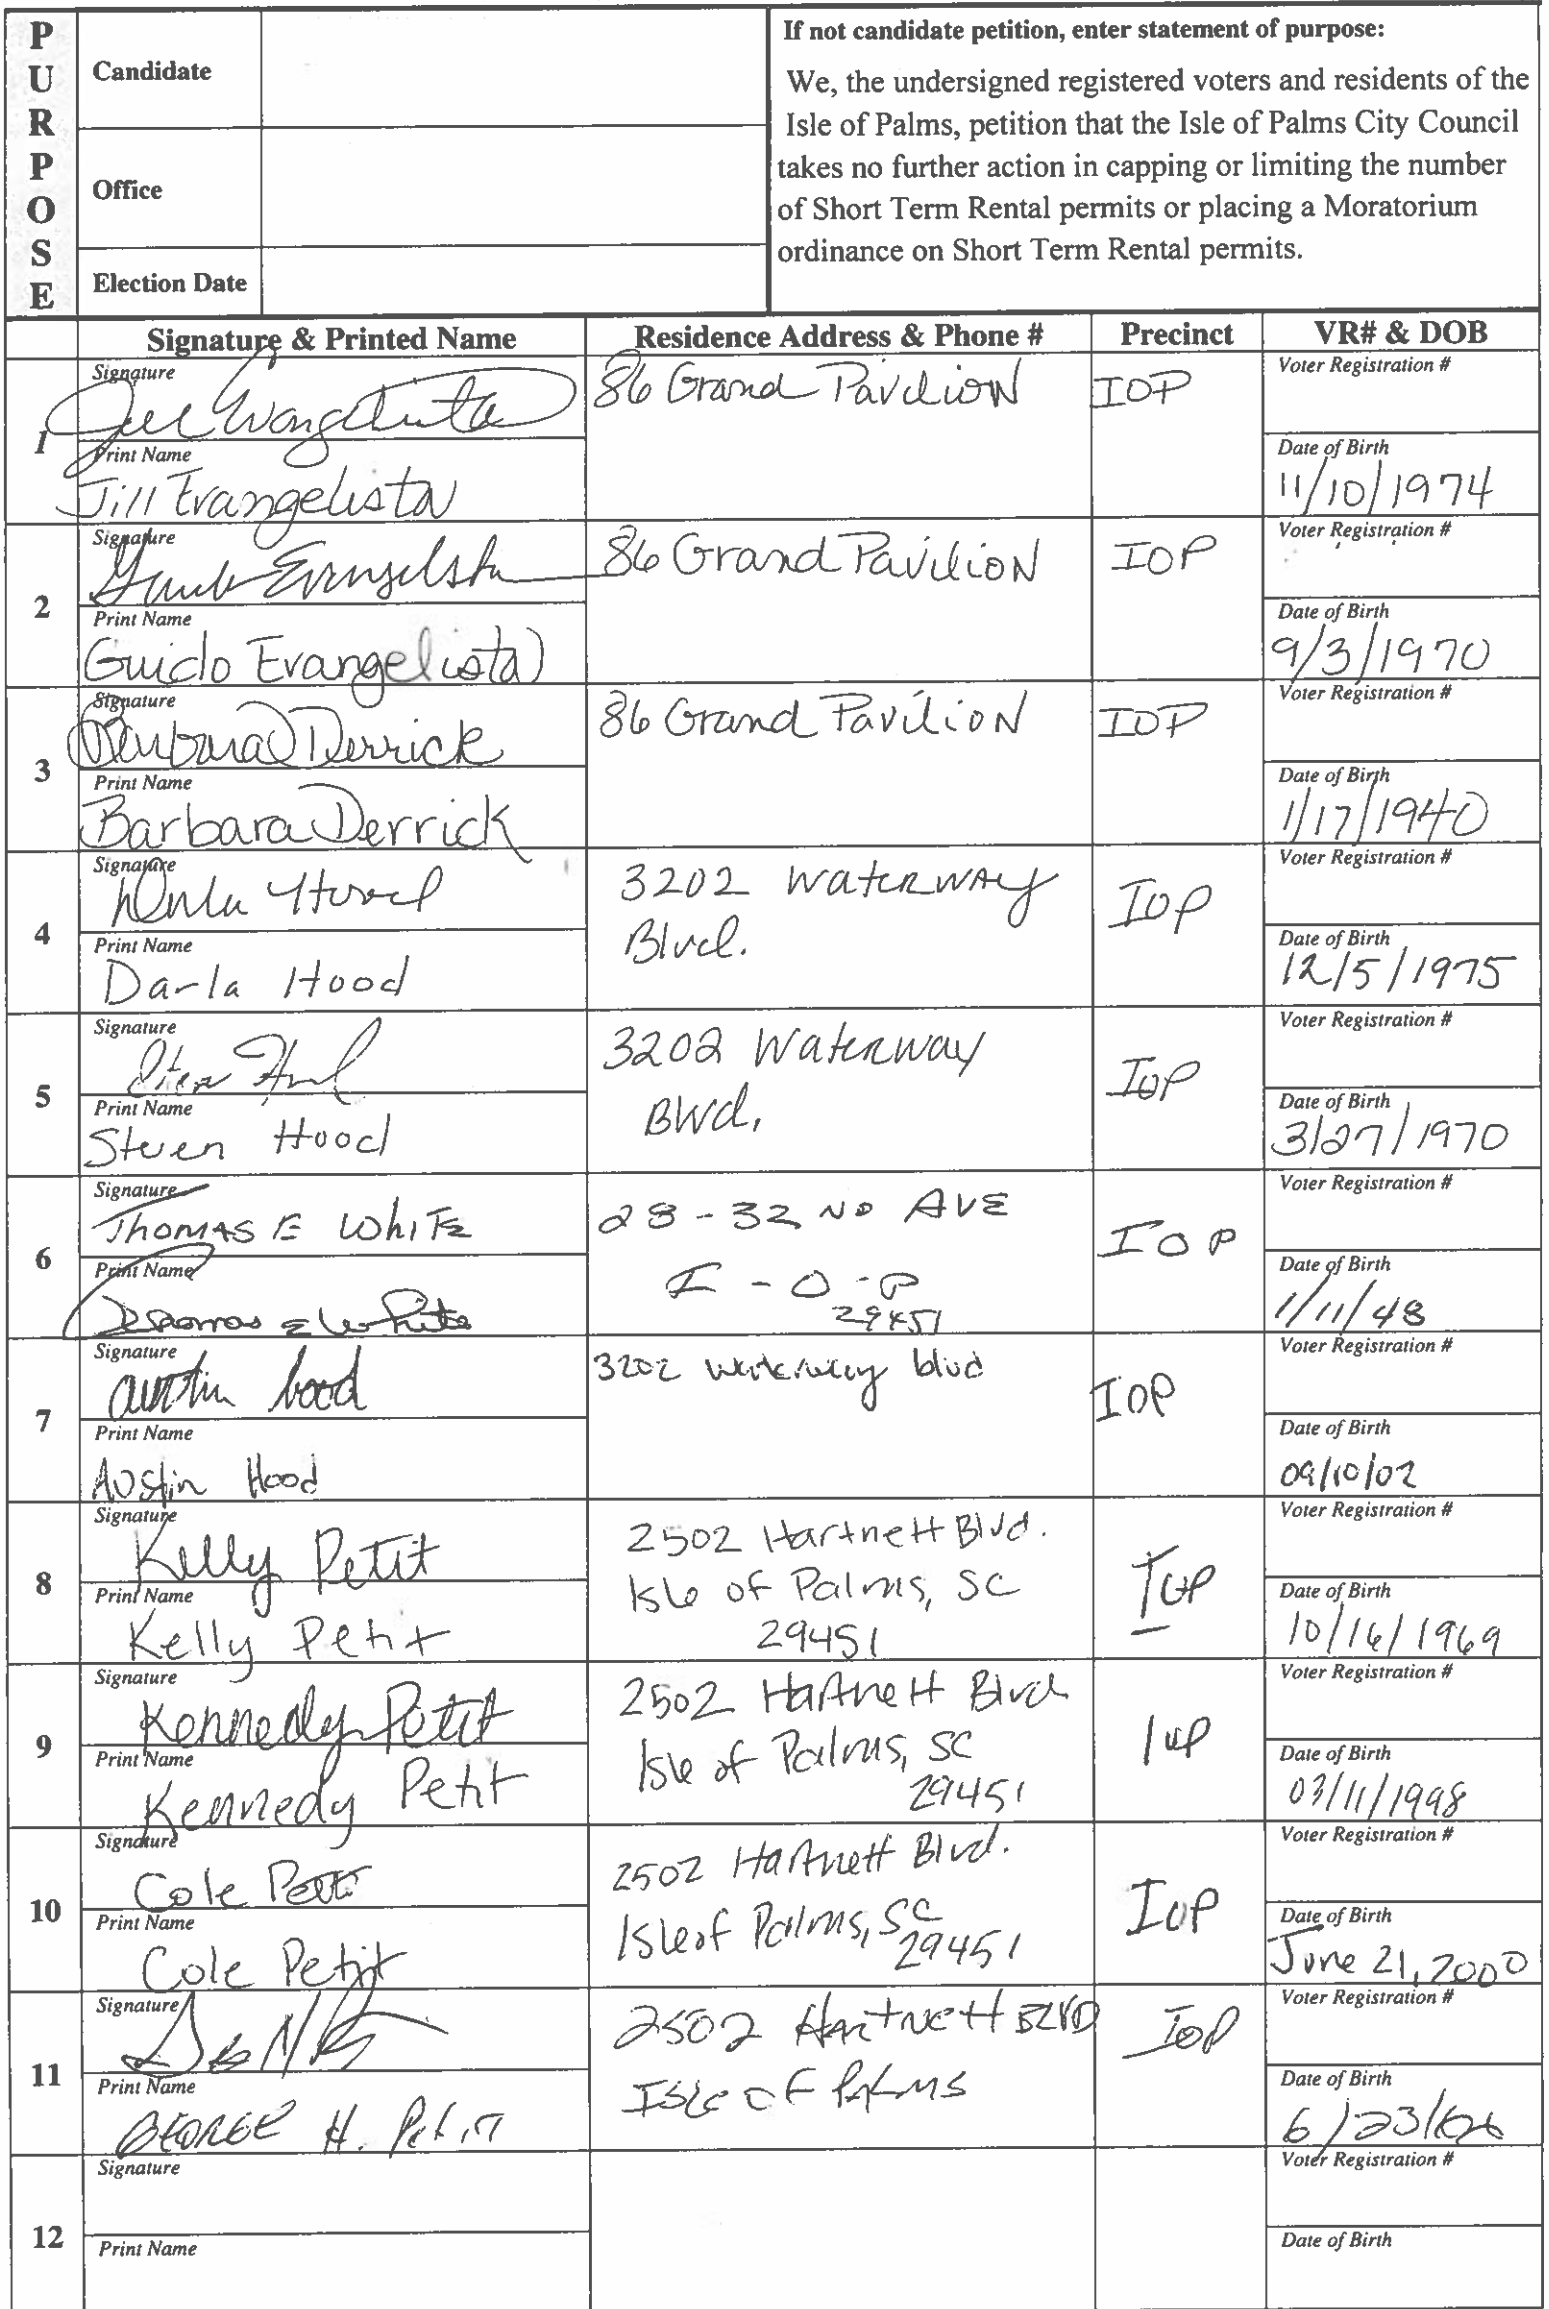 PURPOSE
Candidate
Office
Election Date
If not candidate petition, enter statement of purpose:
We, the undersigned registered voters and residents of the
Isle of Palms, petition that the Isle of Palms City Council
takes no further action in capping or limiting the number
of Short Term Rental permits or placing a Moratorium
ordinance on Short Term Rental permits.
Signature & Printed Name Residence Address & Phone # Precinct VR# & DOB
1
Signature
Jill Evangelista
Print Name
Jill Evangelista
86 Grand Pavilion
IOP
Voter Registration #
Date of Birth
11/10/1974
2
Signature
Evangelista
Print Name
Guido Evangelista
86 Grand Pavilion
IOP
Voter Registration #
Date of Birth
9/3/1970
3
Signature
Barbara Derrick
Print Name
Barbara Derrick
86 Grand Pavilion
IOP
Voter Registration #
Date of Birth
1/17/1940
4
Signature
Darla Hood
Print Name
Darla Hood
3202 Waterway
Blvd.
IOP
Voter Registration #
Date of Birth
12/5/1975
5
Signature
Steven Hood
Print Name
Steven Hood
3202 Waterway
Blvd.
IOP
Voter Registration #
Date of Birth
3/27/1970
6
Signature
THOMAS E WHITE
Print Name
Thomas E White
28-32ND AVE
I-O-P
29451
IOP
Voter Registration #
Date of Birth
1/11/48
7
Signature
austin hood
Print Name
Austin Hood
3202 waterway blvd
IOP
Voter Registration #
Date of Birth
09/10/02
8
Signature
Kelly Petit
Print Name
Kelly Petit
2502 Hartnett Blvd.
Isle of Palms, SC
29451
IOP
Voter Registration #
Date of Birth
10/16/1969
9
Signature
Kennedy Petit
Print Name
Kennedy Petit
2502 Hartnett Blvd
Isle of Palms, SC
29451
IOP
Voter Registration #
Date of Birth
03/11/1998
10
Signature
Cole Petit
Print Name
Cole Petit
2502 Hartnett Blvd.
Isle of Palms, SC
29451
IOP
Voter Registration #
Date of Birth
June 21, 2000
11
Signature
Print Name
GEORGE H. Petit
2502 Hartnett BLVD
ISLE OF PALMS
IOP
Voter Registration #
Date of Birth
6/23/
12
Signature
Print Name
Voter Registration #
Date of Birth